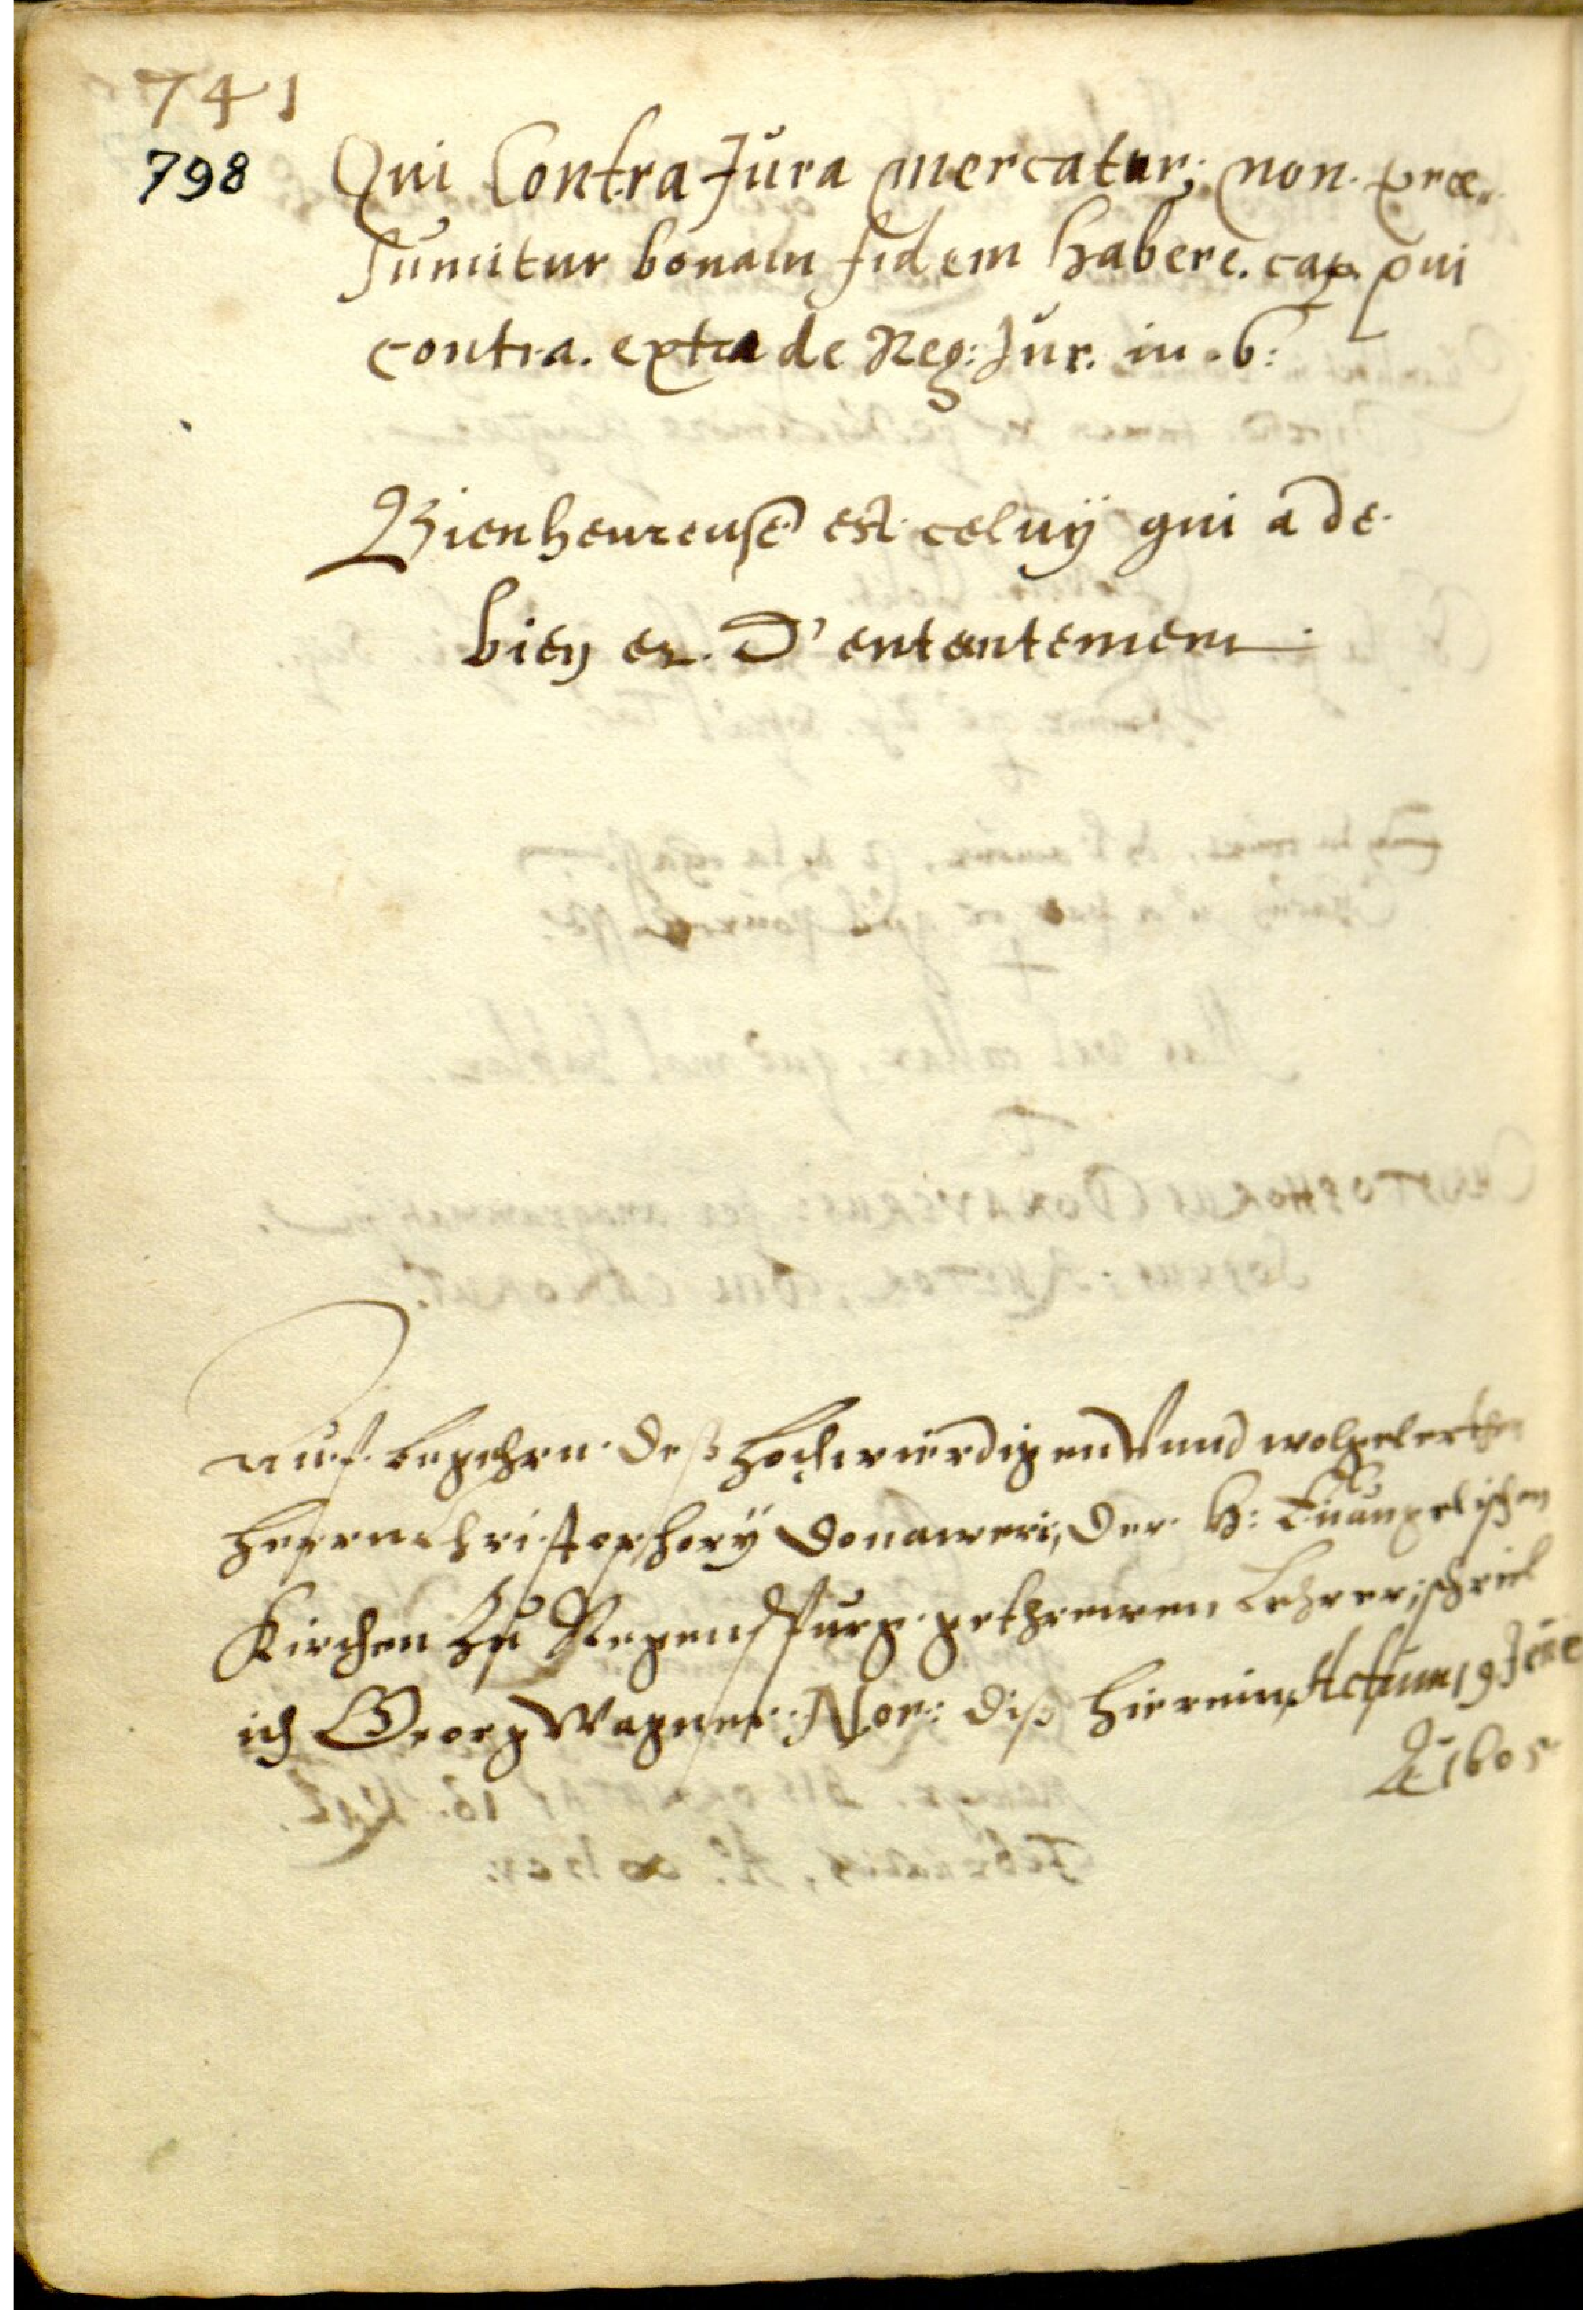 741
798
Qui Contra Jura mercatur; non præ„
sumitur bonam fidem habere. cap. qui
contra. extra de Reg: Jur. in . 6:
Bienheureuse est celuÿ qui a de
bien et D'ententement.
Auf begehrn deß Hochwürdigen Vnnd wolgelerthen
Herrn Christophorÿ Donaweri, der H: Euangelischen
Kirchen Zu Regenspurg gethrewen Lehrer, schrieb
ich Georg Wagner Nor: diß hierein, Actum 19
A: 1605